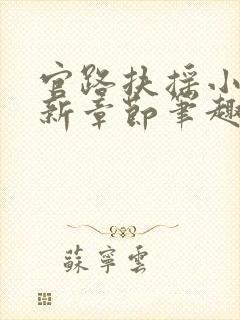 官路扶摇小
新章节笔趣
蘇寧雲